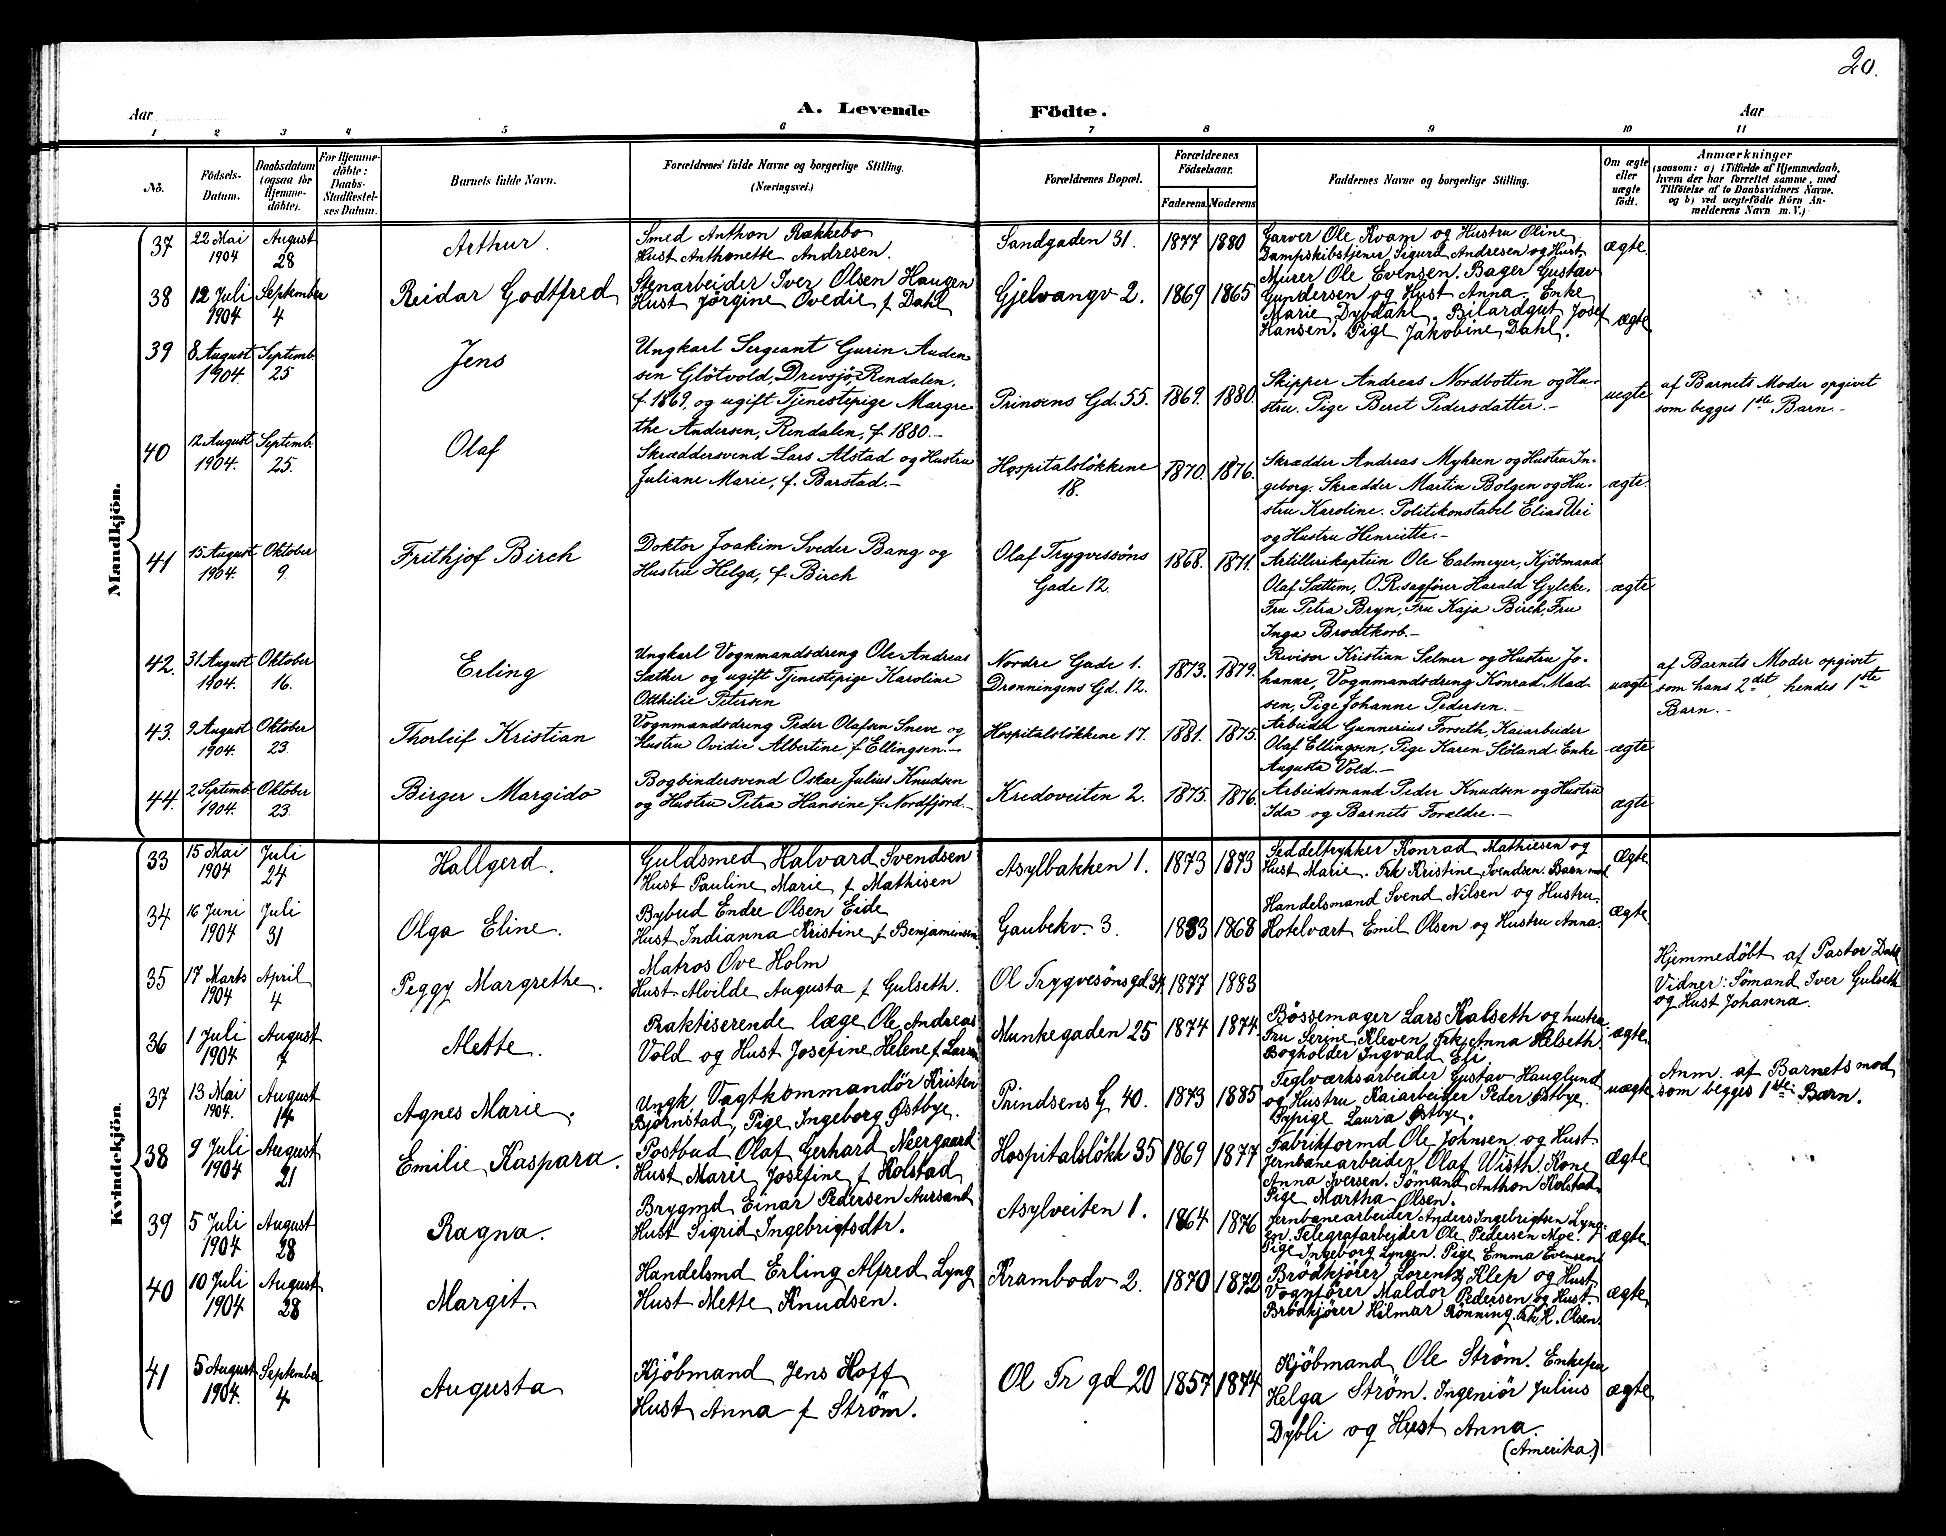 20.
Aar
A. Levende Födte.
Aar
1 2 3 4 5 6 7 8 9 10 11
No.
Födsels-
Datum.
Daabsdatum
(ogsaa for
Hjemme-
döbte).
For Hjemme-
döbte:
Daabs-
Stadfæstel-
ses Datum.
Barnets fulde Navn.
Forældrenes' fulde Navne og borgerlige Stilling.
(Næringsvei.)
Forældrenes Bopæl.
Forældrenes
Födselsaar.
Faderens. Moderens.
Faddernes Navne og borgerlige Stilling.
Om ægte
eller
uægte
født.
Anmærkninger
(saasom: a) i Tilfælde af Hjemmedaab,
hvem der har forrettet samme, med
Tilföielse af to Daabsvidners Navne.
og b) ved uægtefödte Börn An-
melderens Navn m. V.)
Mandkjön.
37
22 Mai
1904
August
28
Arthur.
Smed Anthon Rækkebo
Hust Anthonette Andresen.
Sandgaden 31.
1877
1880
Garver Ole Kvam og Hustru Oline
Dampskibstjener Sigurd Andresen og Hust
ægte.
38
12 Juli
1904
September
4
Reidar Godtfred
Stenarbeider Iver Olsen Haugen
Hust Jörgine Ovedie f Dahl
Gjelvangv 2.
1869
1865
Murer Ole Evensen. Bager Gustav
Gundersen og Hust Anna. Enke
Marie Dybdahl. Bilardgut Josef
Hansen. Pige Jakobine Dahl.
ægte
39
8 August
1904.
Septemb.
25
Jens
Ungkarl Sergeant Gurin Auden
sen Glötvold, Drevsjö, Rendalen.
f. 1869, og ugift Tjenestepige Margre
the Andersen, Rendalen, f. 1880.-
Prinsens Gd. 55.
1869.
1880.
Skipper Andreas Nordbotten og Hu-
stru. Pige Beret Pedersdatter.-
uegte
af Barnets Moder opgivet
som begges 1ste Barn.-
40
12 August
1904.
Septemb.
25.
Olaf
Skræddersvend Lars Alstad og Hustru
Juliane Marie, f. Barstad.-
Hospitalslökkene
18.
1870.
1876.
Skrædder Andreas Myhren og Hustru In-
geborg. Skrædder Martin Bolgen og Hu-
stru Karoline. Politikonstabel Elias Uri
og Hustru Henriette.-
ægte.
41
15 August
1904.
Oktober
9.
Frithjof Birch
Doktor Joakim Sveder Bang og
Hustru Helga, f. Birch
Olaf Trygvessöns
Gade 12.
1868.
1871.
Artillerikaptein Ole Calmeyer, Kjöbmand
Olaf Sættem, O.R.sagförer Harald Gylcke,
Fru Petra Bryn, Fru Kaja Birch, Fru
Inga Brodtkorb.-
ægte
42.
31 August
1904.
Oktober
16.
Erling
Ungkarl Vognmandsdreng Ole Andreas
Sæther og ugift Tjenestepige Karoline
Otthilie Petersen
Nordre Gade 1.
Dronningens Gd. 12.
1873.
1879.
Revisor Kristian Selmer og Hustru Jo-
hanne, Vognmandsdreng Konrad Mad-
sen, Pige Johanne Pedersen.-
uægte
af Barnets Moder opgivet
som hans 2det, hendes 1ste
Barn.-
43.
9 August
1904.
Oktober
23.
Thorleif Kristian
Vognmandsdreng Peder Olafsen Sneve og
Hustru Ovidie Albertine f. Ellingsen.-
Hospitalslökkene 17.
1881.
1875.
Arbeider Gunnerius Forseth, Kaiarbeider
Olaf Ellingsen, Pige Karen Slöland, Enke
Augusta Vold.-
ægte
44.
2 Septemb.
1904.
Oktober
23.
Birger Margido
Bogbindersvend Oskar Julius Knudsen
og Hustru Petra Hansine f. Nordfjord.-
Kredoveiten 2.
1875.
1876.
Arbeidsmand Peder Knudsen og Hustru
Ida og Barnets Forældre.-
ægte
Kvindekjön.
33
15 Mai
1904
Juli
24
Hallgerd.
Guldsmed Halvard Svendsen
Hust Pauline Marie f Mathisen
Asylbakken 1.
1873
1873
Seddeltrykker Konrad Mathiesen og
Hust Marie. Frk Kristine Svendsen. Barn mod
Ægte
34
16 Juni
1904
Juli
31
Olga Eline.
Bybud Endre Olsen Eide
Hust Indianna Kristine f Benjaminsen
Gaubekv. 3.
1883
1868
Handelsmand Svend Nilsen og Hustru.
Hotelvært Emil Olsen og Hustru Anna.
Ægte
35
17 Marts
1904
April
4
Peggy Margrethe.
Matros Ove Holm
Hust Alvilde Augusta f Gulseth.
Ol Trygvesönsgd 34
1877
1883
Hjemmedöbt af Pastor Dahl
Vidner: Sömand Iver Gulseth
og Hust Johanna.
36
1 Juli
1904
August
7
Alette.
Praktiserende læge Ole Andreas
Vold og Hust Josefine Helene f. Larsen
Munkegaden 25
1874
1874
Bössemager Lars Kalseth og hustru.
Fru Serine Kleven. Frk Anna Helseth.
Bogholder Ingvald Eli
ægte
37
13 Mai
1904.
August
14
Agnes Marie.
Ungk. Vagtkommandör Kristen
Bjørnstad, Pige Ingeborg Østbye.
Prindsens G 40.
1873
1885
Teglværksarbeider Gustav Hauglund
og Hustru Kaiarbeider Peder Østbye.
Sypige Laura Østbye.
uægte
Anm. af Barnets mod
som begges 1ste Barn.
38
9 Juli
1904
August
21
Emilie Kaspara.
Postbud Olaf Gerhard Neergaard
Hust Marie Josefine f Kolstad
Hospitalslökk 35
1869
1877
Fabrikformd Ole Johnsen og Hust
Jernbanearbeider Olaf Wisth. Kone
Anna Iversen. Sömand Anthon Kolstad
Pige Martha Olsen.
ægte
39
5 Juli
1904
August
28
Ragna.
Brygmd Einar Pedersen Aursand
Hust Sigrid Ingebrigtsdtr.
Asylveiten 1.
1864
1876
Jernbanearbeider Anders Ingebrigtsen Lyng-
en. Telegrafarbejder Ole Pedersen Moe.
Pige Ingeborg Lyngen. Pige Emma Evensen
ægte
40
10 Juli
1904
August
28
Margit.
Handelsmd Erling Alfred Lyng
Hust Mette Knudsen.
Krambodv 2.
1870
1872
Brödkjörer Lorentz Klep og Hust
Vognförer Maldor Pedersen og Hust.
Brödkjörer Hilmar Rönning. Frk H. Olsen.
ægte
41
5 August
1904.
September
4
Augusta
Kjöbmand Jens Hoff
Hust Anna f Ström.
Ol Tr gd 20
1857
1874
Kjöbmand Ole Ström. Enkefru
Helga Strøm. Ingeniör Julius
Dybli og Hust Anna.
(Amerika.)
ægte